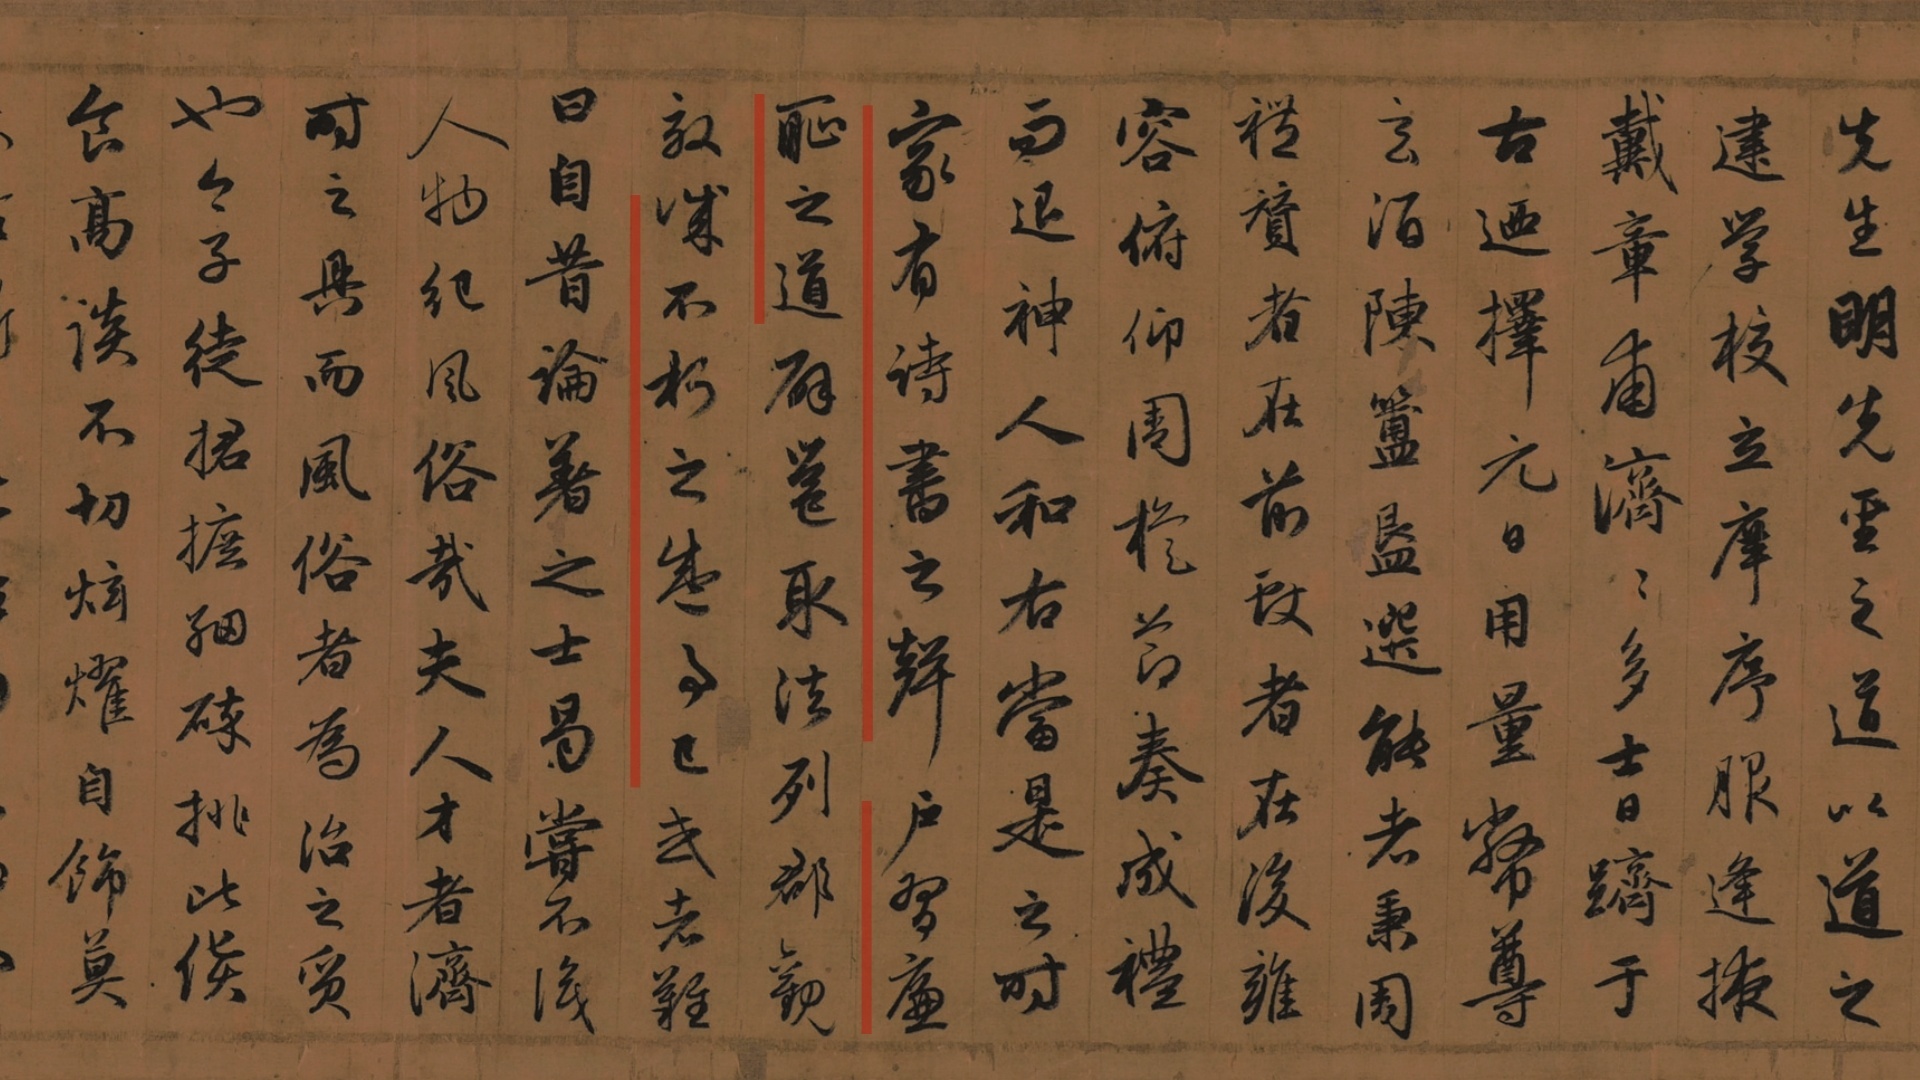 先生明先聖之道以道之
建學校立庠序服逢掖
戴章甫濟〻多士日躋于
古迺擇元日用量幣尊
玄酒陳簠簋選能者秉周
禮贊者在前致者在後雍
容俯仰周旋節奏成禮
而退神人和右當是之時
家有詩書之聲戶習廉
恥之道辟邕取法列郡觀
效誠不朽之盛事已或者難
曰自昔論著之士曷嘗不識
人物紀風俗哉夫人才者濟
時之具而風俗者為治之質
也今子徒捃摭細碎挑此
食高談不切炫燿自飾莫